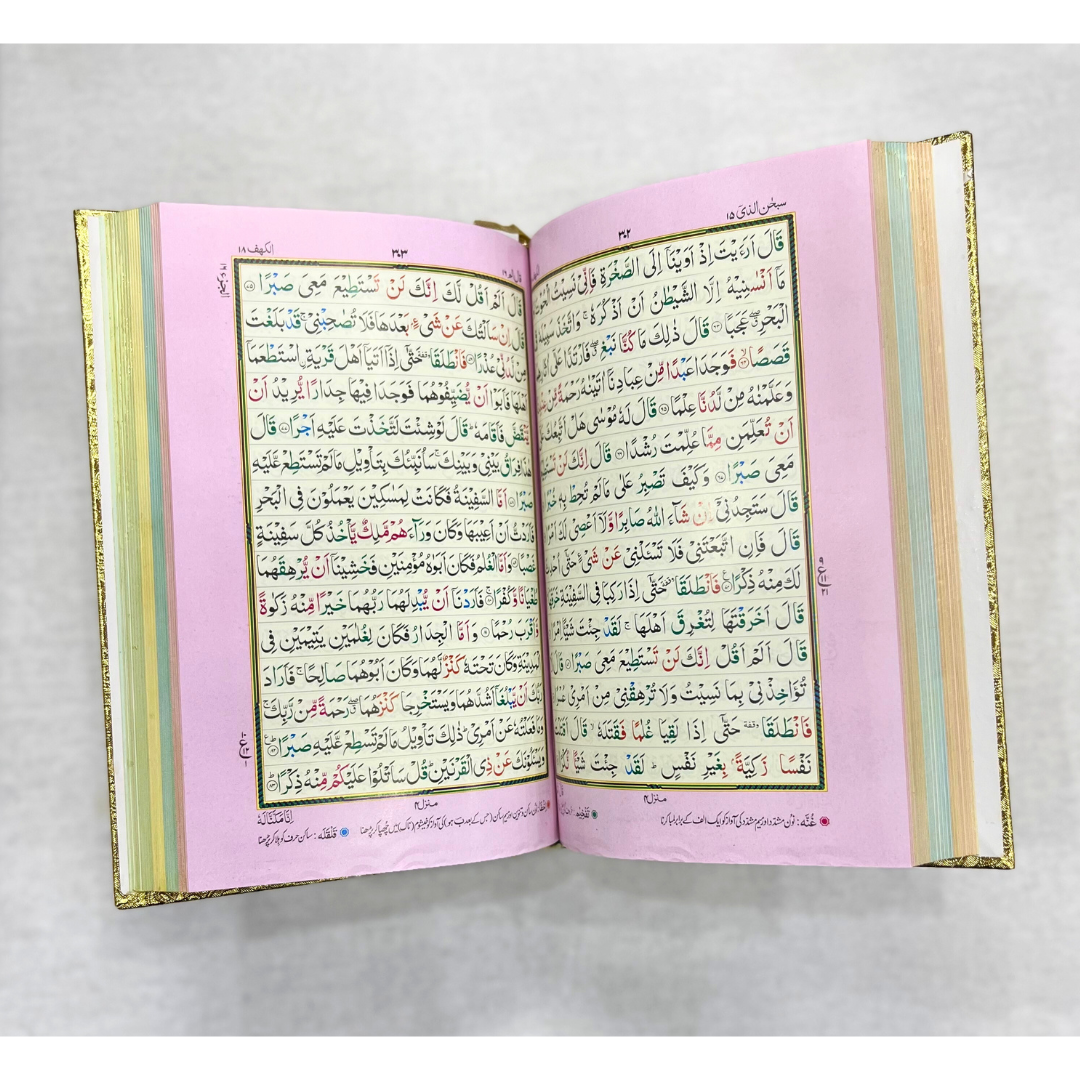 سبحٰن الذیٓ ۱۵
۳۰۲
قَالَ اَرَءَيْتَ اِذْ اَوَيْنَاۤ اِلَى الصَّخْرَةِ فَاِنِّیْ نَسِيْتُ الْحُوْتَ
مَاۤ اَنْسٰىنِيْهُ اِلَّا الشَّيْطٰنُ اَنْ اَذْكُرَهٗ ۚ وَاتَّخَذَ سَبِيْلَهٗ
الْبَحْرِ ۖ عَجَبًا ﴿۶۳﴾ قَالَ ذٰلِكَ مَا كُنَّا نَبْغِ ۖ فَارْتَدَّا عَلٰۤى
قَصَصًا ﴿۶۴﴾ فَوَجَدَا عَبْدًا مِّنْ عِبَادِنَاۤ اٰتَيْنٰهُ رَحْمَةً مِّنْ
وَعَلَّمْنٰهُ مِنْ لَّدُنَّا عِلْمًا ﴿۶۵﴾ قَالَ لَهٗ مُوْسٰى هَلْ اَتَّبِعُكَ
اَنْ تُعَلِّمَنِ مِمَّا عُلِّمْتَ رُشْدًا ﴿۶۶﴾ قَالَ اِنَّكَ لَنْ تَسْتَطِيْعَ
مَعِیَ صَبْرًا ﴿۶۷﴾ وَكَيْفَ تَصْبِرُ عَلٰى مَا لَمْ تُحِطْ بِهٖ خُبْرًا
قَالَ سَتَجِدُنِیْۤ اِنْ شَآءَ اللّٰهُ صَابِرًا وَّلَاۤ اَعْصِیْ لَكَ اَمْرًا
قَالَ فَاِنِ اتَّبَعْتَنِیْ فَلَا تَسْـَٔلْنِیْ عَنْ شَیْءٍ حَتّٰۤى اُحْدِثَ
لَكَ مِنْهُ ذِكْرًا ﴿۷۰﴾ فَانْطَلَقَا ۥ حَتّٰۤى اِذَا رَكِبَا فِی السَّفِيْنَةِ خَرَقَهَا
قَالَ اَخَرَقْتَهَا لِتُغْرِقَ اَهْلَهَا ۚ لَقَدْ جِئْتَ شَيْـًٔا اِمْرًا
قَالَ اَلَمْ اَقُلْ اِنَّكَ لَنْ تَسْتَطِيْعَ مَعِیَ صَبْرًا ﴿۷۲﴾ قَالَ
تُؤَاخِذْنِیْ بِمَا نَسِيْتُ وَلَا تُرْهِقْنِیْ مِنْ اَمْرِیْ عُسْرًا
فَانْطَلَقَا ۥ حَتّٰۤى اِذَا لَقِيَا غُلٰمًا فَقَتَلَهٗ ۙ قَالَ اَقَتَلْتَ
نَفْسًا زَكِيَّةًۢ بِغَيْرِ نَفْسٍ ؕ لَقَدْ جِئْتَ شَيْـًٔا نُّكْرًا
منزل ۴
غُنّه: نون مشدّد اور میم مشدّد کی آواز کو ایک الف کے برابر لمبا کرنا
الکهف ۱۸
۳۰۳
قال الم ۱۶
قَالَ اَلَمْ اَقُلْ لَّكَ اِنَّكَ لَنْ تَسْتَطِيْعَ مَعِیَ صَبْرًا ﴿۷۵﴾
قَالَ اِنْ سَاَلْتُكَ عَنْ شَیْءٍۭ بَعْدَهَا فَلَا تُصٰحِبْنِیْ ۚ قَدْ بَلَغْتَ
مِنْ لَّدُنِّیْ عُذْرًا ﴿۷۶﴾ فَانْطَلَقَا ۥ حَتّٰۤى اِذَاۤ اَتَيَاۤ اَهْلَ قَرْيَةِ اِۨسْتَطْعَمَاۤ
اَهْلَهَا فَاَبَوْا اَنْ يُّضَيِّفُوْهُمَا فَوَجَدَا فِيْهَا جِدَارًا يُّرِيْدُ اَنْ
يَّنْقَضَّ فَاَقَامَهٗ ؕ قَالَ لَوْ شِئْتَ لَتَّخَذْتَ عَلَيْهِ اَجْرًا ﴿۷۷﴾ قَالَ
هٰذَا فِرَاقُ بَيْنِیْ وَبَيْنِكَ ۚ سَاُنَبِّئُكَ بِتَاْوِيْلِ مَا لَمْ تَسْتَطِعْ عَّلَيْهِ
صَبْرًا ﴿۷۸﴾ اَمَّا السَّفِيْنَةُ فَكَانَتْ لِمَسٰكِيْنَ يَعْمَلُوْنَ فِی الْبَحْرِ
فَاَرَدْتُّ اَنْ اَعِيْبَهَا وَكَانَ وَرَآءَهُمْ مَّلِكٌ يَّاْخُذُ كُلَّ سَفِيْنَةٍ
غَصْبًا ﴿۷۹﴾ وَاَمَّا الْغُلٰمُ فَكَانَ اَبَوٰهُ مُؤْمِنَيْنِ فَخَشِيْنَاۤ اَنْ يُّرْهِقَهُمَا
طُغْيَانًا وَّكُفْرًا ﴿۸۰﴾ فَاَرَدْنَاۤ اَنْ يُّبْدِلَهُمَا رَبُّهُمَا خَيْرًا مِّنْهُ زَكٰوةً
وَّاَقْرَبَ رُحْمًا ﴿۸۱﴾ وَاَمَّا الْجِدَارُ فَكَانَ لِغُلٰمَيْنِ يَتِيْمَيْنِ فِی
الْمَدِيْنَةِ وَكَانَ تَحْتَهٗ كَنْزٌ لَّهُمَا وَكَانَ اَبُوْهُمَا صَالِحًا ۚ فَاَرَادَ
رَبُّكَ اَنْ يَّبْلُغَاۤ اَشُدَّهُمَا وَيَسْتَخْرِجَا كَنْزَهُمَا ۖ رَحْمَةً مِّنْ رَّبِّكَ ۚ
وَمَا فَعَلْتُهٗ عَنْ اَمْرِیْ ؕ ذٰلِكَ تَاْوِيْلُ مَا لَمْ تَسْطِعْ عَّلَيْهِ صَبْرًا ﴿۸۲﴾
وَيَسْـَٔلُوْنَكَ عَنْ ذِی الْقَرْنَيْنِ ؕ قُلْ سَاَتْلُوْا عَلَيْكُمْ مِّنْهُ ذِكْرًا ﴿۸۳﴾
منزل ۴
اِنَّا مَكَّنَّا لَهٗ
قلقله: ساکن حرف کو ہلا کر پڑھنا